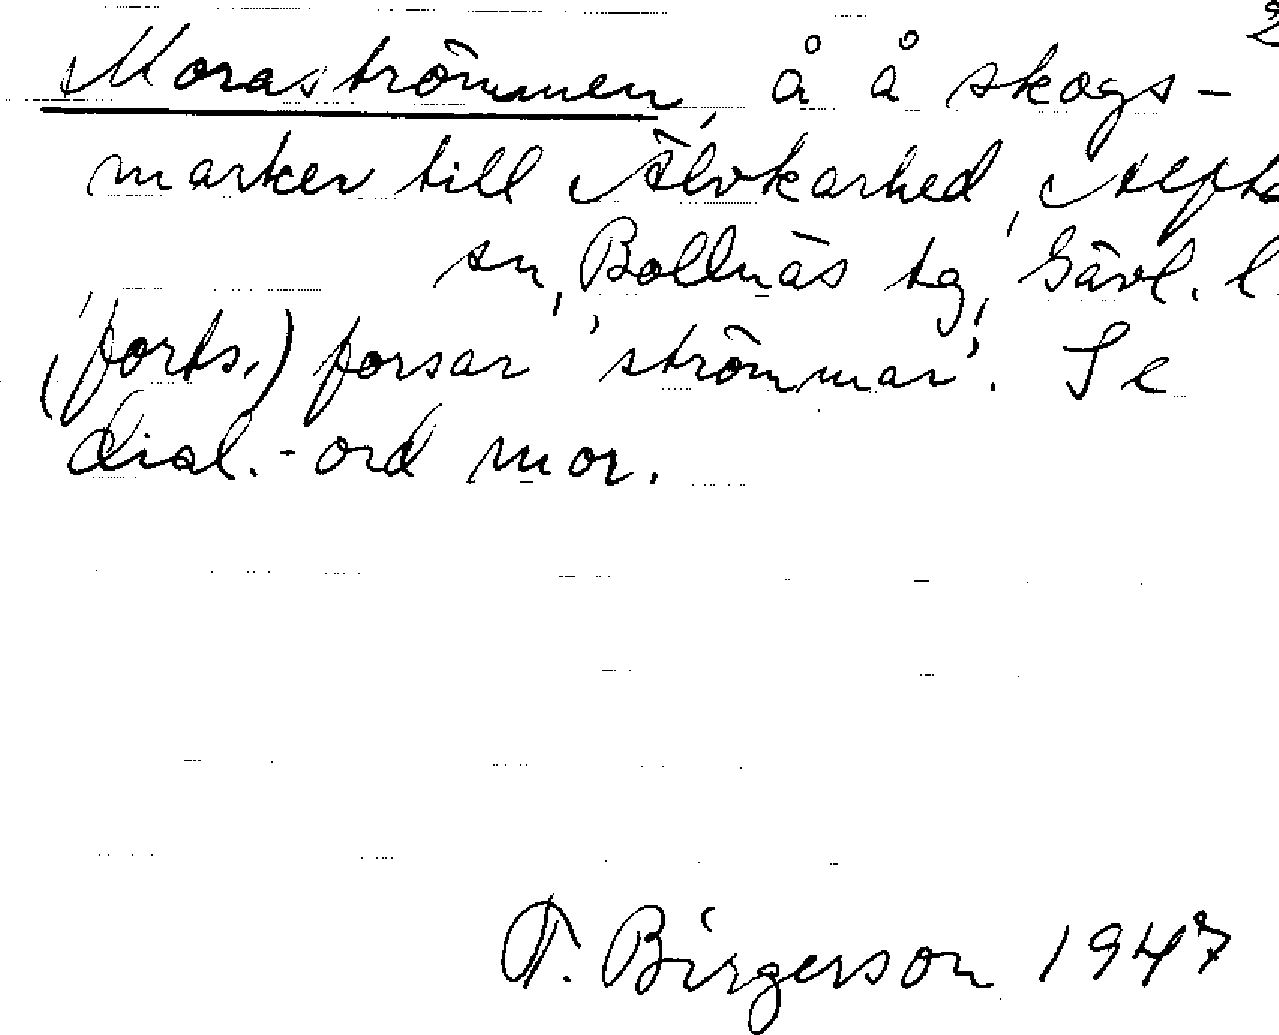 2
Moraströmmen, å å skogs-
marker till Älvkarhed, Alfta
sn, Bollnäs tg, Gävl. l
(forts.) forsar 'strömmar'. Se
dial.-ord mor.
T. Birgerson 1947